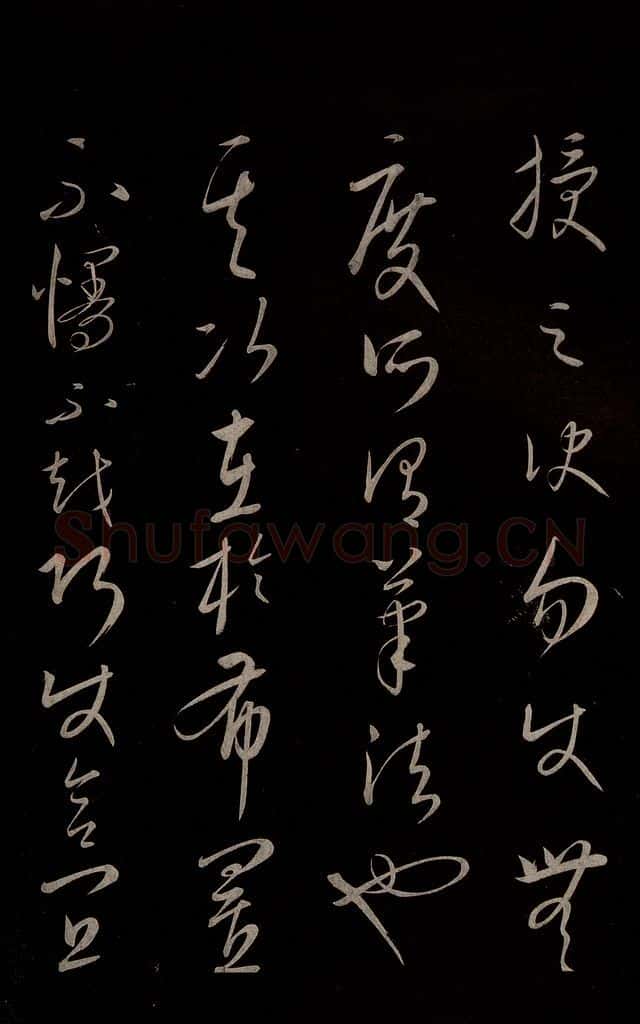 授之訣勿使無
度所謂筆法也
其次在於布置
不慢不越巧使合宜
Shufawang.CN